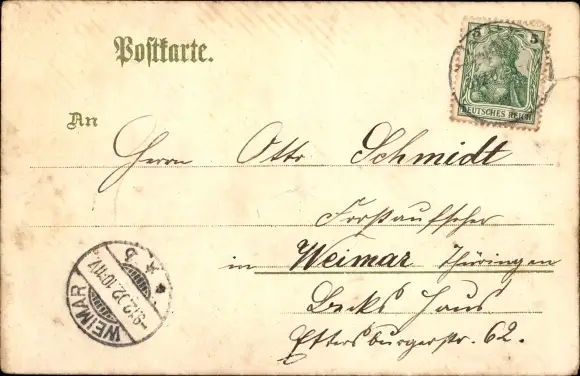 Postkarte.
5 5
DEUTSCHES REICH
An
Herrn Otto Schmidt
Forstaufseher
in Weimar Thüringen
Haus
Ettersburgerstr. 62.
WEIMAR
-9.12.02.10-11V.
* b *